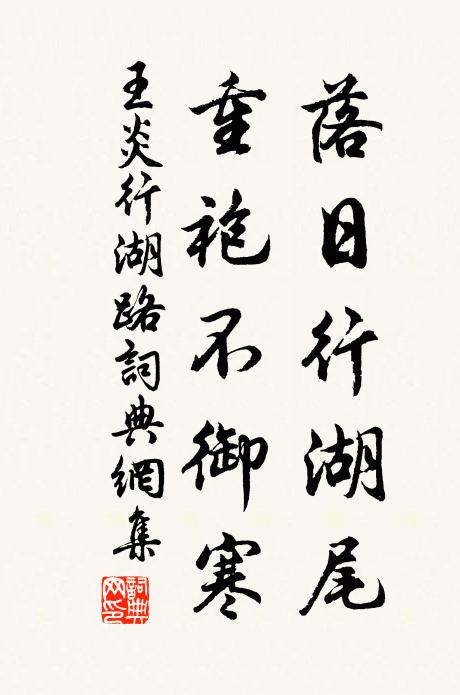 落日行湖尾
重袍不御寒
王炎行湖路詞典網集
詞典
网印